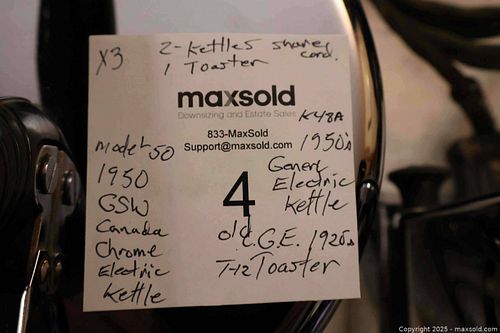 X3
2-Kettles share cord.
1 Toaster
maxsold
Downsizing and Estate Sales
833-MaxSold
Support@maxsold.com
4
Model 50
1950
GSW
Canada
Chrome
Electric
Kettle
K48A
1950's
General
Electric
Kettle
old C.G.E. 1920s
T-12 Toaster
Copyright 2025 - maxsold.com